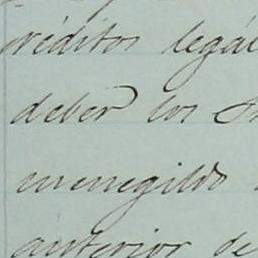 réditos legal
deber los
menegildo
anterior de